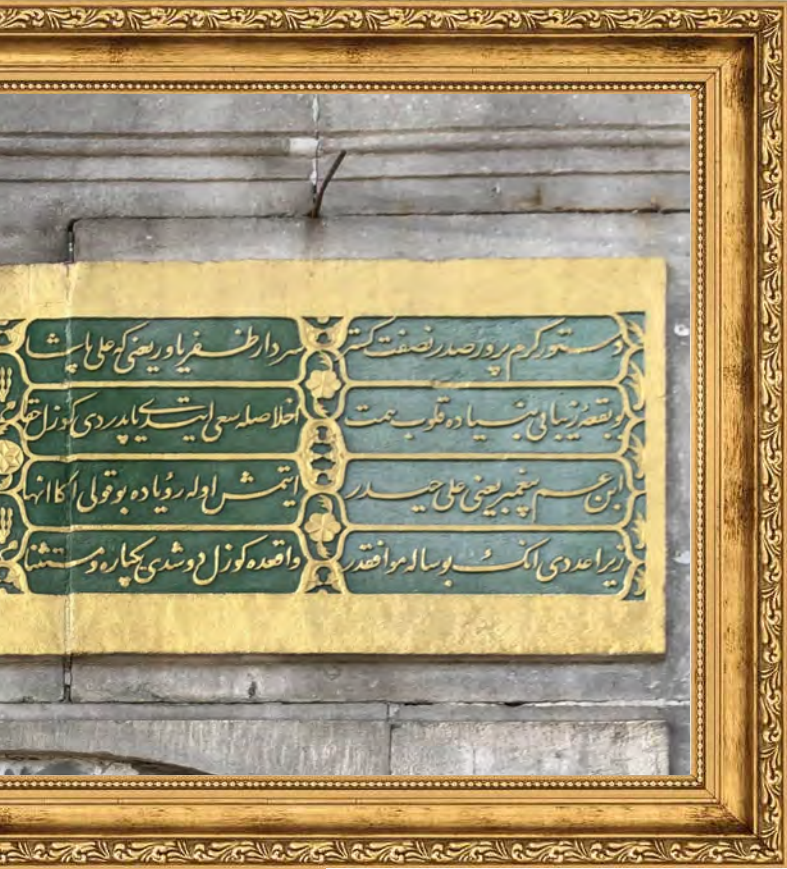 دستور کرم پرور صدر نصفت کستر سردار ظفر یاور یعنی که علی پاشا
بو بقعهٔ زیبانی بنیاده قلوب همت اخلاصله سعی ایتدی یاپدردی کوزل
ابن عم پیغمبر یعنی علی حیدر ایتمش اوله رؤیاده بو قولی اکا انها
زیرا عددی انک بو ساله موافقدر واقعده کوزل دوشدی یکپاره و مستثنا